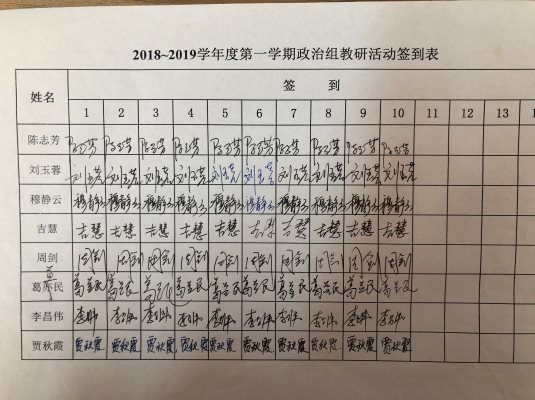 2018~2019学年度第一学期政治组教研活动签到表
姓名 签 到
1 2 3 4 5 6 7 8 9 10 11 12 13
陈志芳 陈志芳 陈志芳 陈志芳 陈志芳 陈志芳 陈志芳 陈志芳 陈志芳 陈志芳 陈志芳
刘玉蓉 刘玉蓉 刘玉蓉 刘玉蓉 刘玉蓉 刘玉蓉 刘玉蓉 刘玉蓉 刘玉蓉 刘玉蓉 刘玉蓉
穆静云 穆静云 穆静云 穆静云 穆静云 穆静云 穆静云 穆静云 穆静云 穆静云 穆静云
吉慧 吉慧 吉慧 吉慧 吉慧 吉慧 吉慧 吉慧 吉慧 吉慧 吉慧
周剑 周剑 周剑 周剑 周剑 周剑 周剑 周剑 周剑 周剑 周剑
葛 民
李昌伟 李昌伟 李昌伟 李昌伟 李昌伟 李昌伟 李昌伟 李昌伟 李昌伟 李昌伟 李昌伟
贾秋霞 贾秋霞 贾秋霞 贾秋霞 贾秋霞 贾秋霞 贾秋霞 贾秋霞 贾秋霞 贾秋霞 贾秋霞